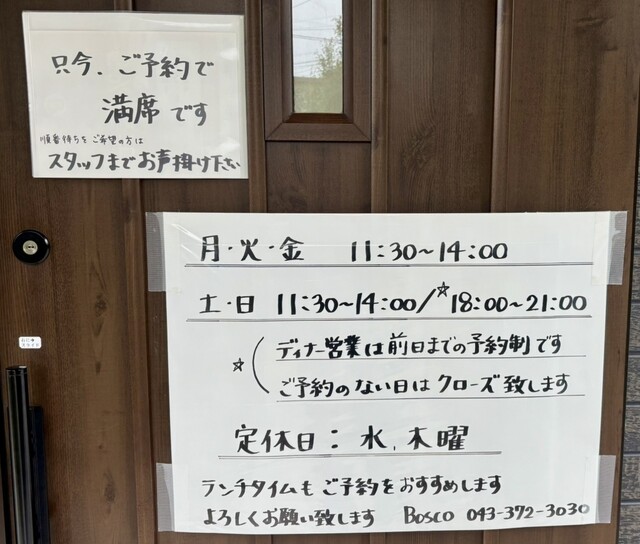 只今、ご予約で
満席です
順番待ちをご希望の方は
スタッフまでお声掛け下さい
月・火・金 11:30~14:00
土・日 11:30~14:00/☆18:00~21:00
☆(ディナー営業は前日までの予約制です
ご予約のない日はクローズ致します
定休日: 水、木曜
ランチタイムもご予約をおすすめします
よろしくお願い致します Bosco 043-372-3030